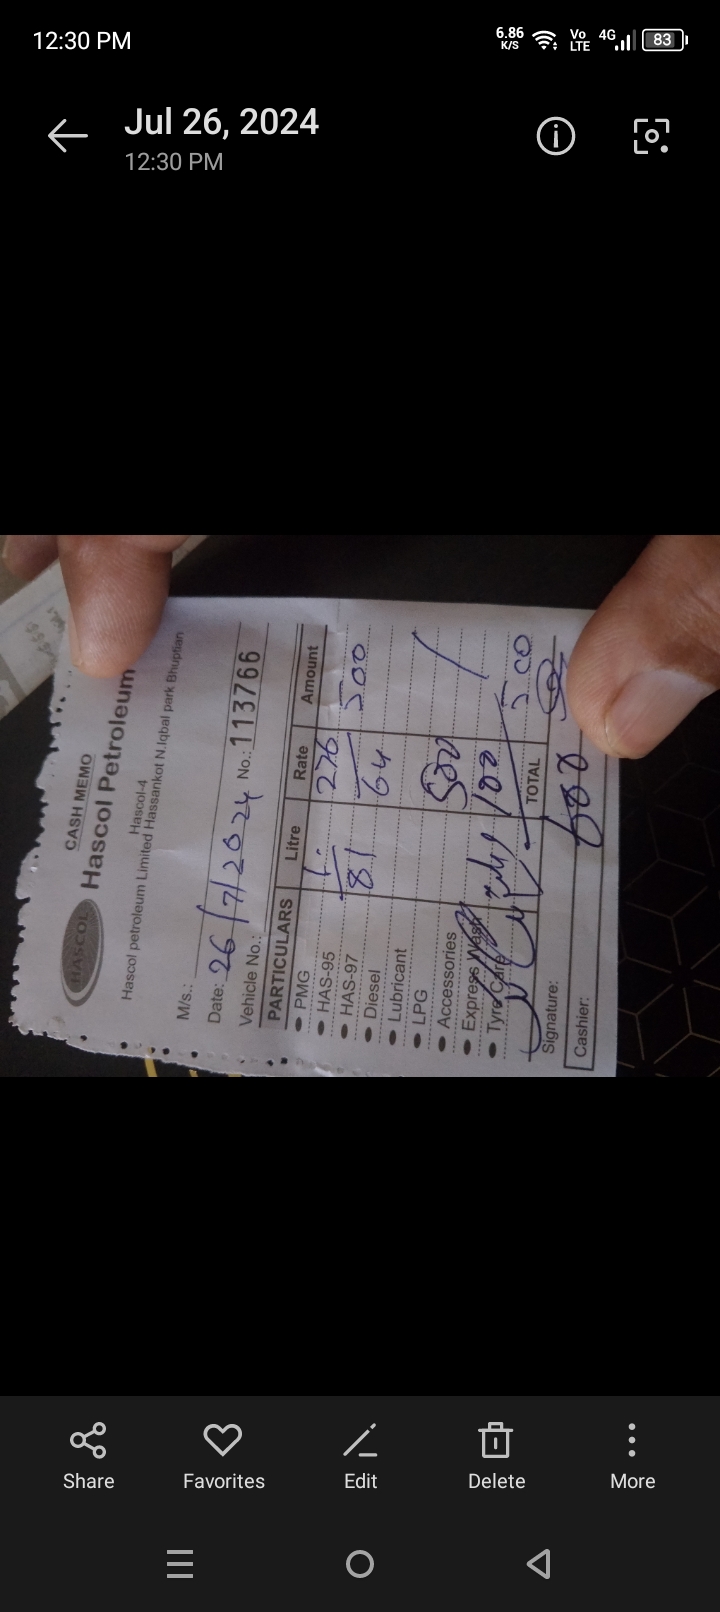 12:30 PM
6.86 K/S
Vo LTE
4G
83
Jul 26, 2024
12:30 PM
CASH MEMO
HASCOL
Hascol Petroleum
Hascol-4
Hascol petroleum Limited Hassankot N.Iqbal park Bhuptian
M/s.:
Date: 26/7/2024 No.: 113766
Vehicle No.:
PARTICULARS Litre Rate Amount
PMG 1. 276
HAS-95 81 64 500
HAS-97
Diesel
Lubricant
LPG 500
Accessories
Express Wash 100
Tyre Care
TOTAL 500
Signature:
Cashier: 600
Share
Favorites
Edit
Delete
More